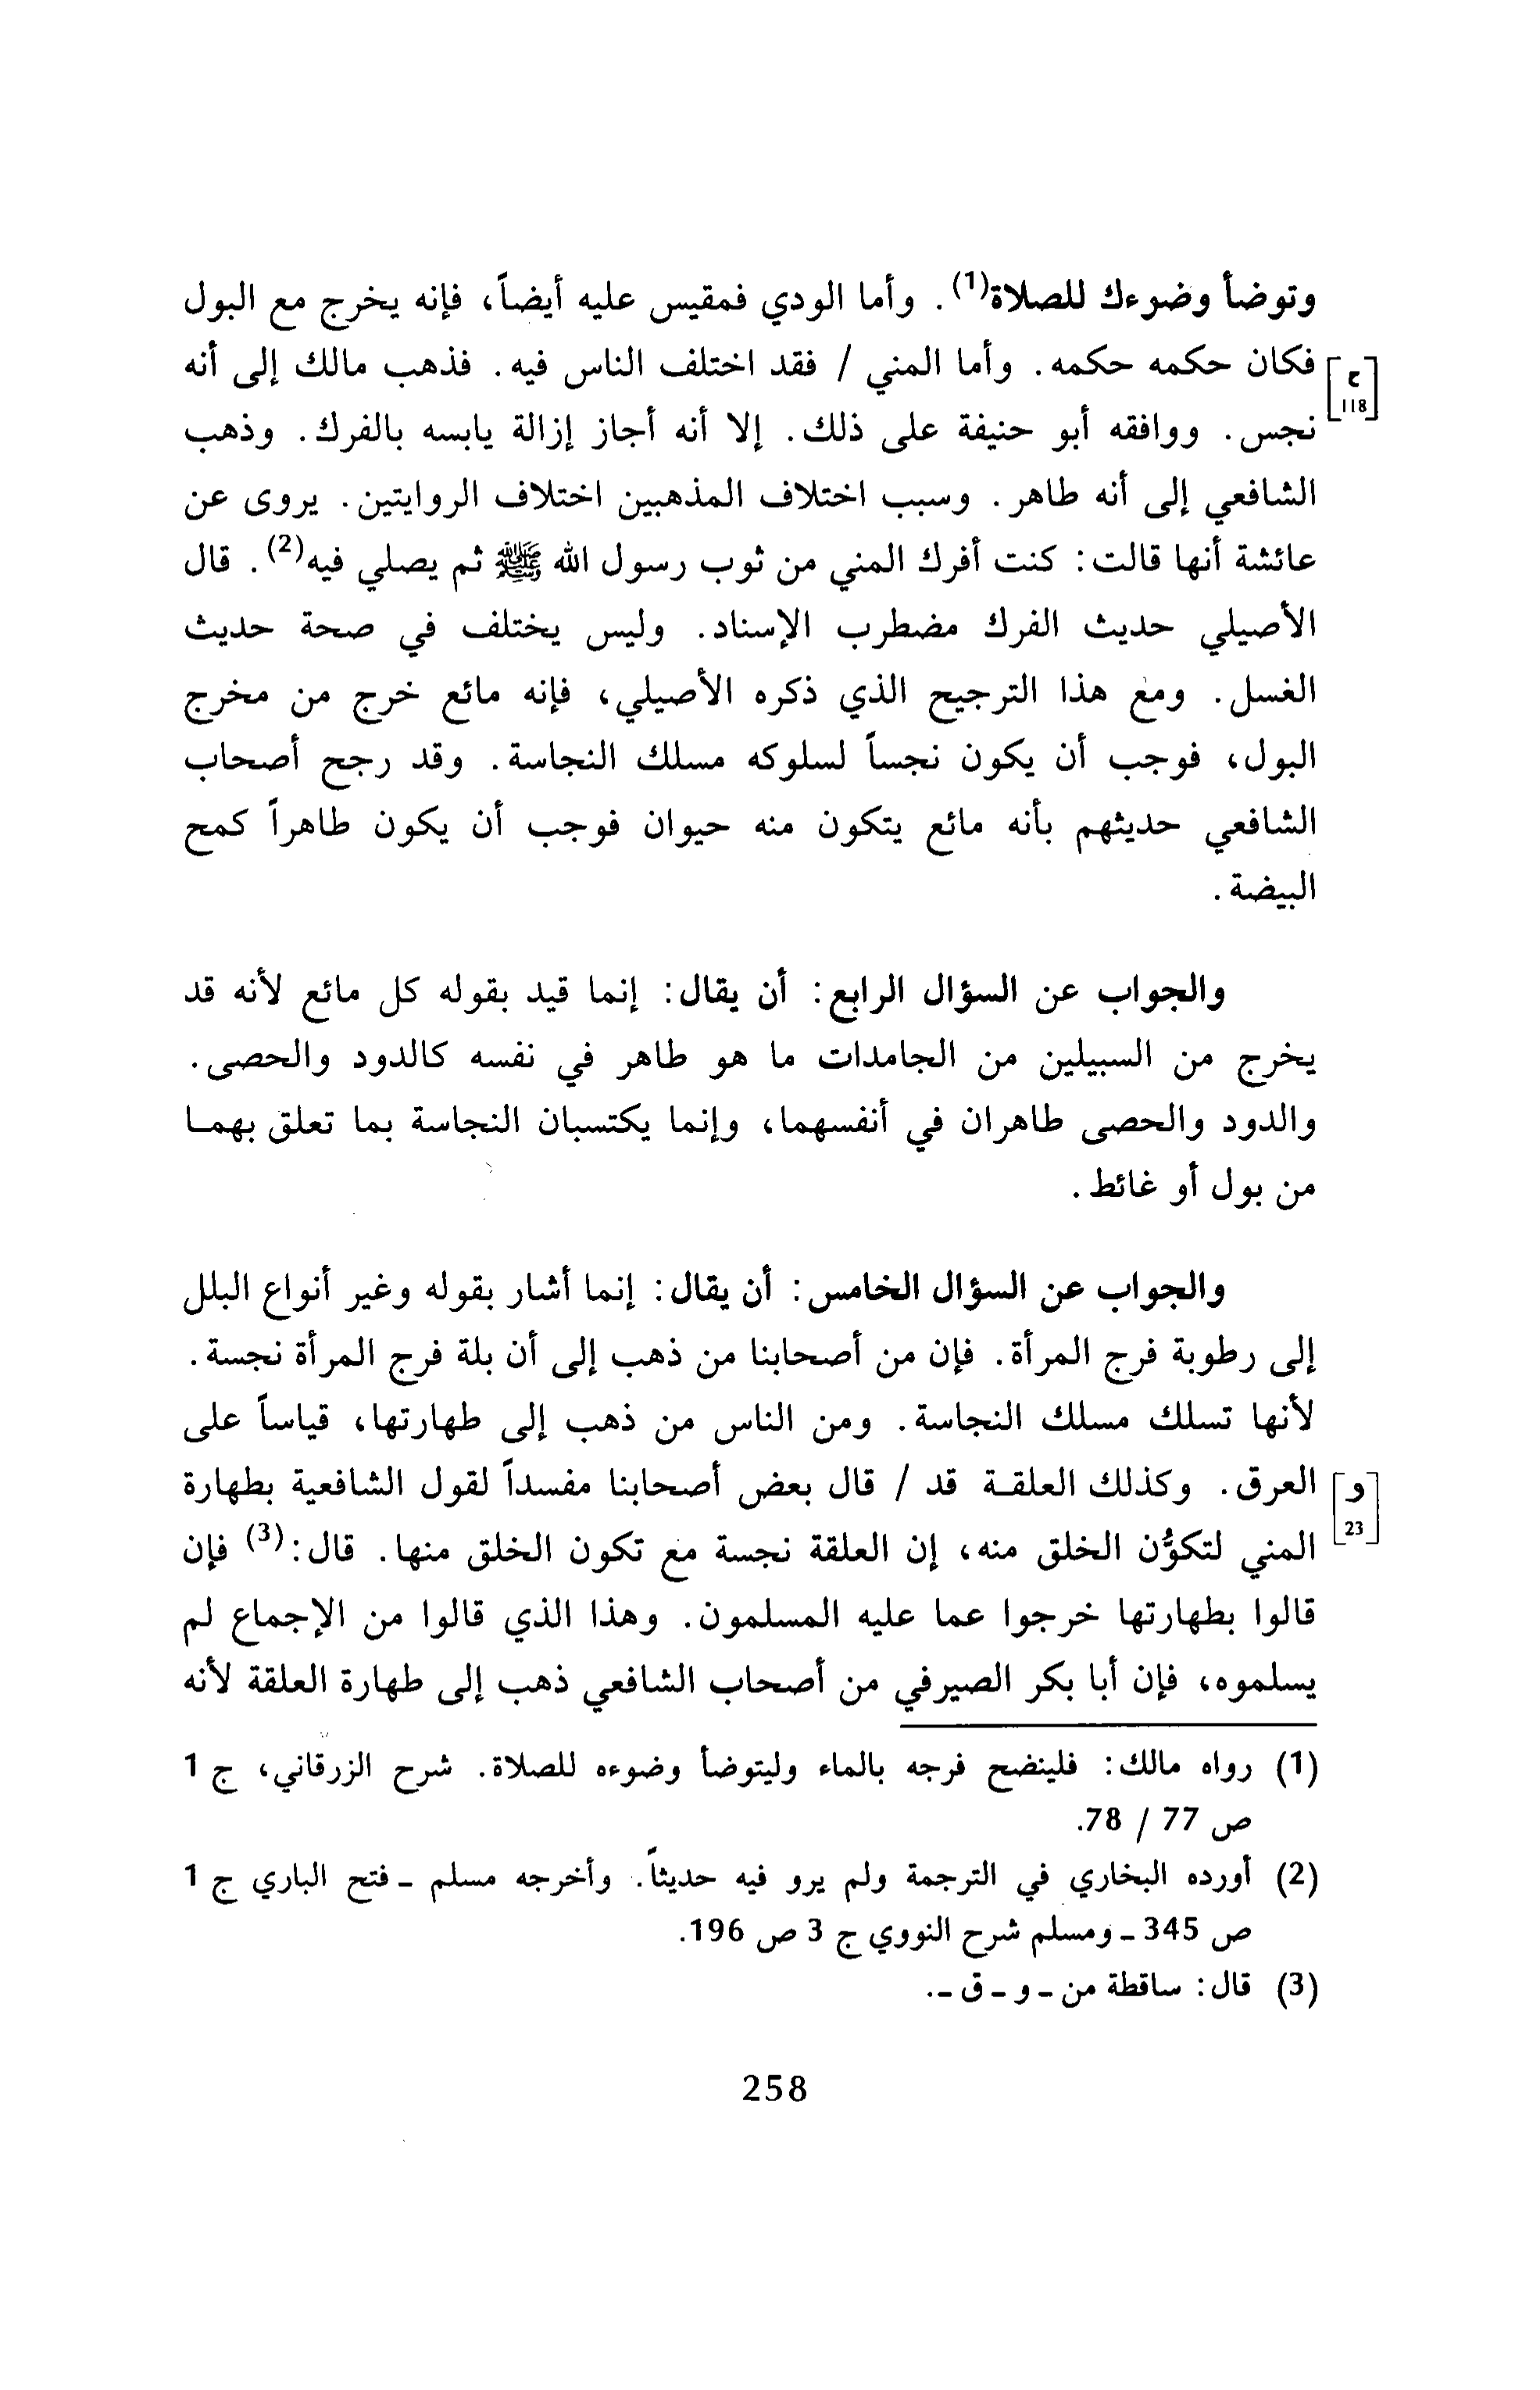 وتوضأ وضوءك للصلاة(1). وأما الودي فمقيس عليه أيضاً، فإنه يخرج مع البول
فكان حكمه حكمه. وأما المني / فقد اختلف الناس فيه. فذهب مالك إلى أنه
[ح 118]
نجس. ووافقه أبو حنيفة على ذلك. إلا أنه أجاز إزالة يابسه بالفرك. وذهب
الشافعي إلى أنه طاهر. وسبب اختلاف المذهبين اختلاف الروايتين. يروى عن
عائشة أنها قالت: كنت أفرك المني من ثوب رسول الله ﷺ ثم يصلي فيه(2). قال
الأصيلي حديث الفرك مضطرب الإسناد. وليس يختلف في صحة حديث
الغسل. ومع هذا الترجيح الذي ذكره الأصيلي، فإنه مائع خرج من مخرج
البول، فوجب أن يكون نجساً لسلوكه مسلك النجاسة. وقد رجح أصحاب
الشافعي حديثهم بأنه مائع يتكون منه حيوان فوجب أن يكون طاهراً كمح
البيضة.
والجواب عن السؤال الرابع: أن يقال: إنما قيد بقوله كل مائع لأنه قد
يخرج من السبيلين من الجامدات ما هو طاهر في نفسه كالدود والحصى.
والدود والحصى طاهران في أنفسهما، وإنما يكتسبان النجاسة بما تعلق بهمـا
من بول أو غائط.
والجواب عن السؤال الخامس: أن يقال: إنما أشار بقوله وغير أنواع البلل
إلى رطوبة فرج المرأة. فإن من أصحابنا من ذهب إلى أن بلة فرج المرأة نجسة.
لأنها تسلك مسلك النجاسة. ومن الناس من ذهب إلى طهارتها، قياساً على
العرق. وكذلك العلقـة قد / قال بعض أصحابنا مفسداً لقول الشافعية بطهارة
[و 23]
المني لتكوُّن الخلق منه، إن العلقة نجسة مع تكون الخلق منها. قال:(3) فإن
قالوا بطهارتها خرجوا عما عليه المسلمون. وهذا الذي قالوا من الإجماع لم
يسلموه، فإن أبا بكر الصيرفي من أصحاب الشافعي ذهب إلى طهارة العلقة لأنه
(1) رواه مالك: فلينضح فرجه بالماء وليتوضأ وضوءه للصلاة. شرح الزرقاني، ج 1
ص 77 / 78.
(2) أورده البخاري في الترجمة ولم يرو فيه حديثاً. وأخرجه مسلم ـ فتح الباري ج 1
ص 345 ـ ومسلم شرح النووي ج 3 ص 196.
(3) قال: ساقطة من ـ و ـ ق ـ.
258